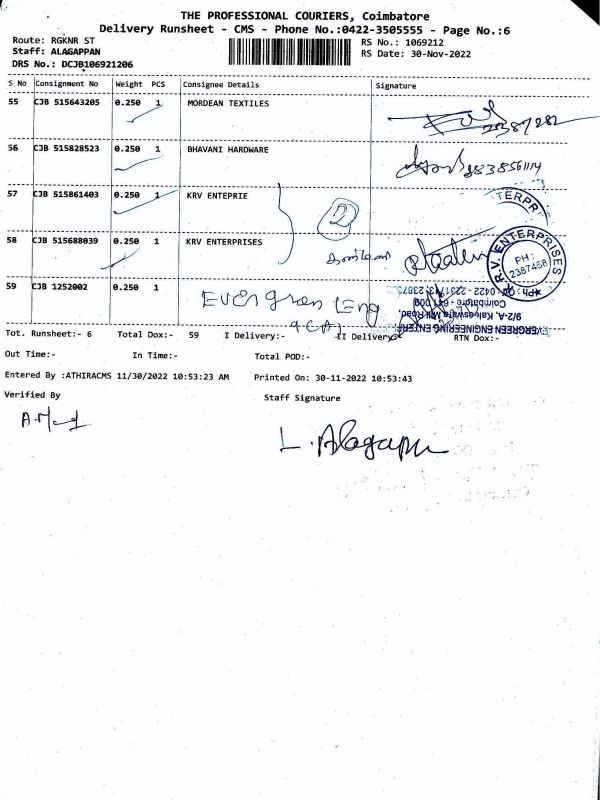 THE PROFESSIONAL COURIERS, Coimbatore
Delivery Runsheet - CMS - Phone No.:0422-3505555 - Page No.:6
Route: RGKNR ST
Staff: ALAGAPPAN
DRS No.: DCJB106921206
RS No.: 1069212
RS Date: 30-Nov-2022
S No Consignment No Weight PCS Consignee Details Signature
55 CJB 515643205 0.250 1 MORDEAN TEXTILES
56 CJB 515828523 0.250 1 BHAVANI HARDWARE
57 CJB 515861403 0.250 1 KRV ENTEPRIE
2
TERPR
58 CJB 515688039 0.250 1 KRV ENTERPRISES
K.R.V. ENTERPRISES
PH :
2387458
59 CJB 1252002 0.250 1
Evergreen Eng
EVERGREEN ENGINEERING ENTER
9/2-A, Kaleeswara Mill Road,
Coimbatore - 641 009
Tot. Runsheet:- 6 Total Dox:- 59 I Delivery:- II Delivery RTN Dox:-
Out Time:- In Time:- Total POD:-
Entered By :ATHIRACMS 11/30/2022 10:53:23 AM Printed On: 30-11-2022 10:53:43
Verified By Staff Signature
L. Alagappn